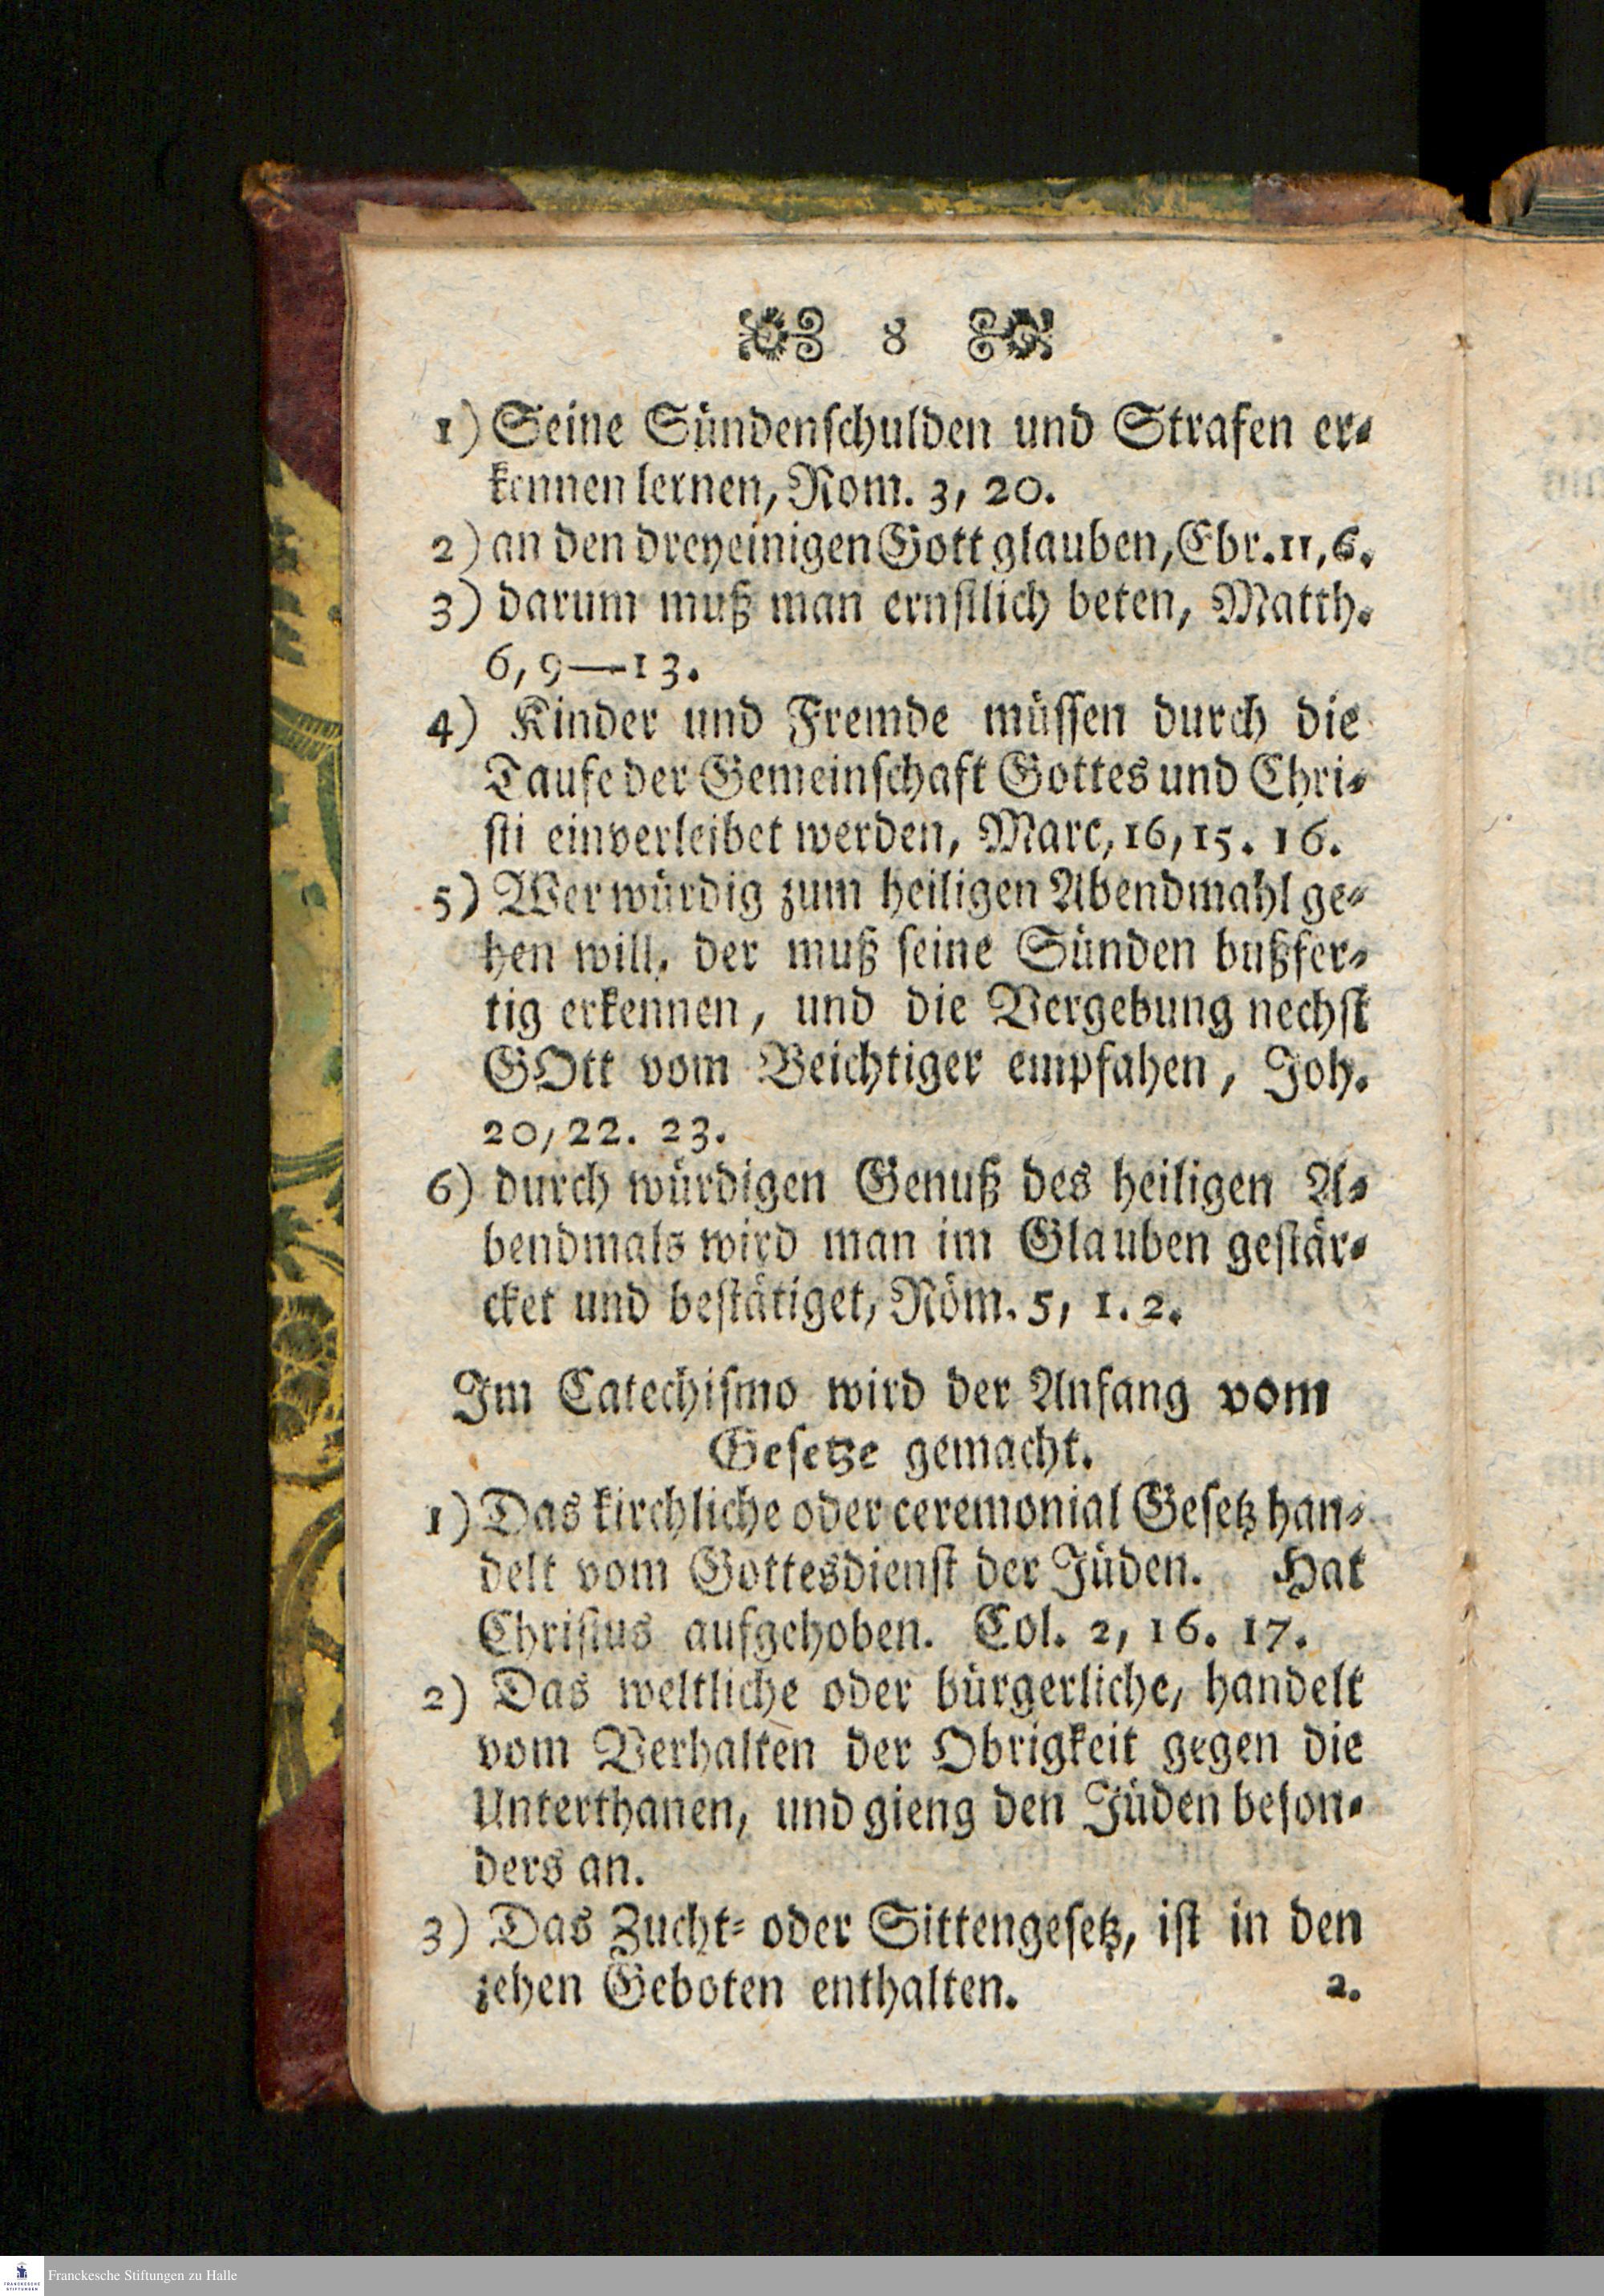 8
1) Seine Sündenschulden und Strafen er-
kennen lernen, Rom. 3, 20.
2) an den dreyeinigen Gott glauben, Ebr. 11, 6.
3) darum muß man ernstlich beten, Matth.
6, 9—13.
4) Kinder und Fremde müssen durch die
Taufe der Gemeinschaft Gottes und Chri-
sti einverleibet werden, Marc, 16, 15. 16.
5) Wer würdig zum heiligen Abendmahl ge-
hen will, der muß seine Sünden bußfer-
tig erkennen, und die Vergebung nechst
GOtt vom Beichtiger empfahen, Joh.
20, 22. 23.
6) durch würdigen Genuß des heiligen A-
bendmals wird man im Glauben gestär-
cket und bestätiget, Röm. 5, 1. 2.
Im Catechismo wird der Anfang vom
Gesetze gemacht.
1) Das kirchliche oder ceremonial Gesetz han-
delt vom Gottesdienst der Jüden. Hat
Christus aufgehoben. Col. 2, 16. 17.
2) Das weltliche oder bürgerliche, handelt
vom Verhalten der Obrigkeit gegen die
Unterthanen, und gieng den Jüden beson-
ders an.
3) Das Zucht- oder Sittengesetz, ist in den
zehen Geboten enthalten. 2.
FRANCKESCHE
STIFTUNGEN
Franckesche Stiftungen zu Halle